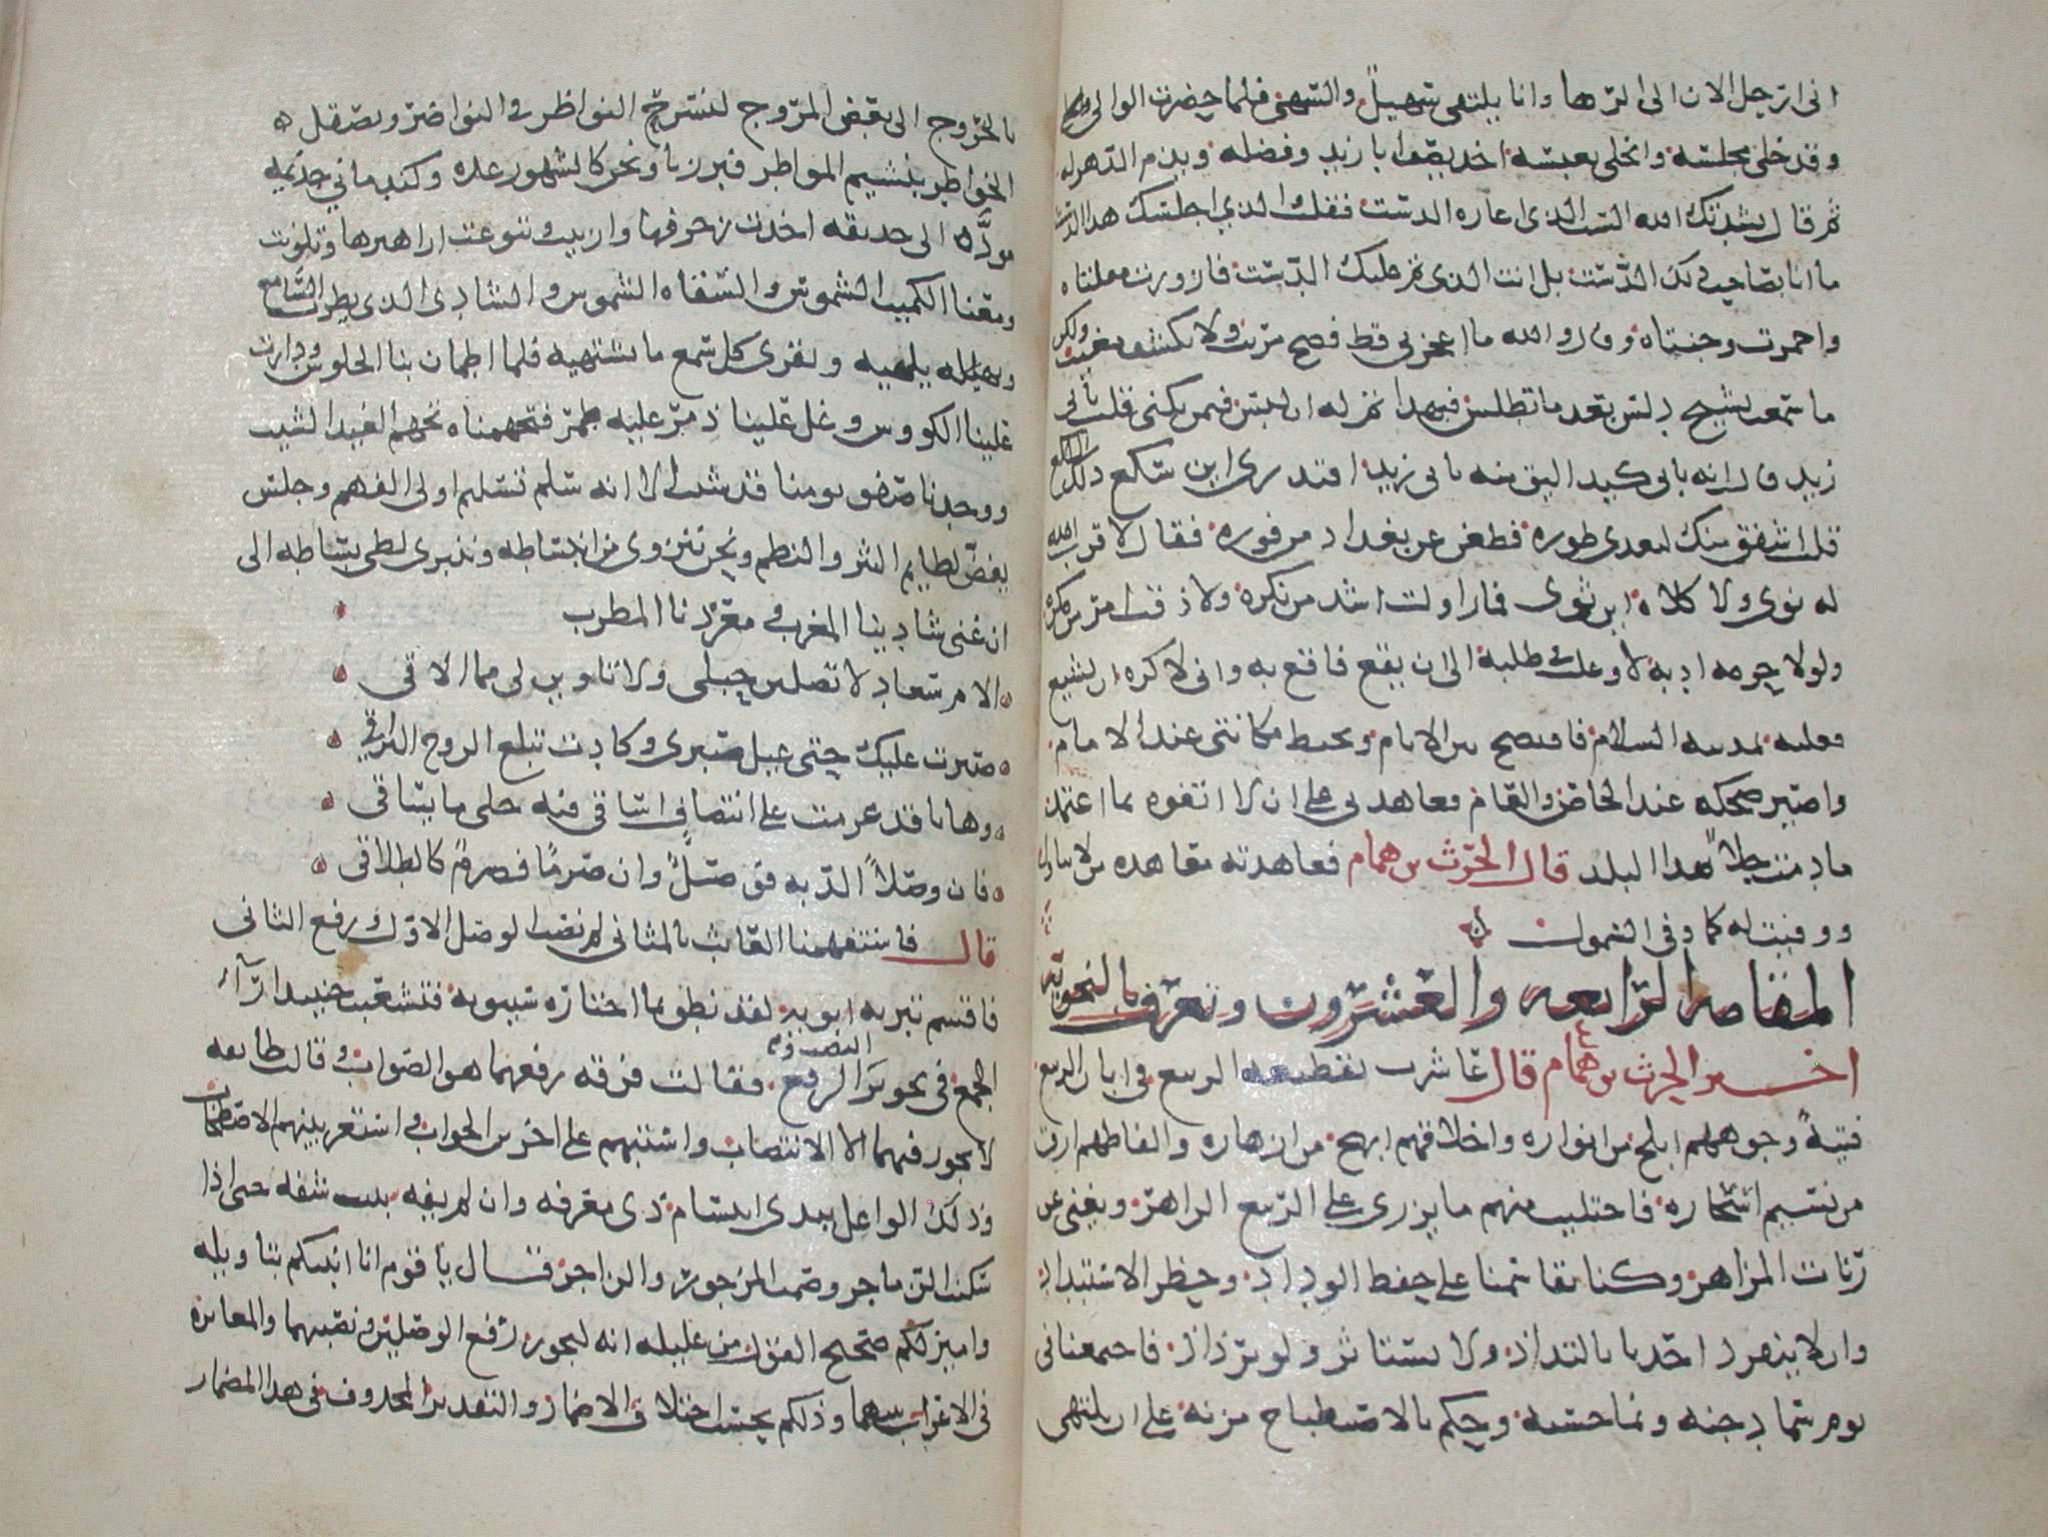 انى ارتحل الان الى الرها وانا بلتقى سهيل والسهى فلما حضرت الوالى
وقد خلى مجلسه وانجلى تعبسه اخذ يصف ابا زيد وفضله ويذم الدهر له
ثم قال نشدتك الله الست الذى اعاره الدست فقلت لا والذي اجلسك هذا الدست
ما انا بصاحب ذلك الدست بل انت الذى تم عليك الدست فازورت مقلتاه
واحمرت وجنتاه وقال والله ما اعجزنى قط فضح مريب ولا تكشيف معيب ولكن
ما سمعت بشيخ دلس بعد ما تطلس فبهذا تم له ان لبس فبمن يكنى قلت بابى
زيد قال انه بابى كيد اليق منه بابى زيد افتدرى اين سكع ذلك اللكع
قلت اشفق منك لتعدى طوره فظعن عن بغداد من فوره فقال لا قرب الله
له نوى ولا كلاه اين ثوى فما زاولت اشد من نكره ولا ذقت امر من مكره
ولولا حرمة ادبه لاوغلت فى طلبه الى ان يقع فاقع به وانى لاكره ان تشيع
فعلته بمدينه السلام فافتضح بين الانام وتحبط مكانتى عند الامام
واصير ضحكه عند الخاص والعام فعاهدنى على ان لا اتفوه بما اعتمد
ما دمت حلا بهذا البلد قال الحرث بن همام فعاهدته معاهده من لا يتاول
ووفيت له كما وفى السمول
المقامه الرابعه والعشرون وتعرف بالنحويه
اخبر الحرث بن همام قال عاشرت بقطيعه الربيع فى ابان الربيع
فتيةً وجوههم ابلج من انواره واخلاقهم ابهج من ازهاره والفاظهم ارق
من نسيم اسحاره فاجتليت منهم ما يزرى على الربيع الزاهر ويغنى عن
رنات المزاهر وكنا تقاسمنا على حفظ الوداد وحظر الاستبداد
وان لا ينفرد احدنا بالتذاذ ولا يستاثر ولو برذاذ فاجمعنا فى
يوم سما دجنه ونما حسنه وحكم بالاصطباح مزنه على ان نلتهى
بالخروج الى بعض المروج لنسرح النواظر فى النواضر ونصقل
الخواطر بشيم المواطر فبرزنا ونحن كالشهور عده وكندمانى جذيمه
مودّه الى حديقه اخذت زخرفها وازينت وتنوعت ازاهيرها وتلونت
ومعنا الكميت الشموس والسقاه الشموس والشادى الذى يطرب السامع
ويلهيه ويقرى كل سمع ما يشتهيه فلما اطمان بنا الجلوس ودارت
علينا الكووس وغل علينا ذمر عليه طمر فتجهمناه تجهم الغيد الشيب
ووجدنا صفو يومنا قد شيب الا انه سلم تسليم اولى الفهم وجلس
يفض لطايم النثر والنظم ونحن ننزوى من انبساطه وننبرى لطى بساطه الى
ان غنى شادينا المغرب ومغردنا المطرب
الام سعاد لا تصلين حبلى ولا تاوين لى مما الاقى
صبرت عليك حتى عيل صبرى وكادت تبلغ الروح التراقى
وها انا قد عزمت على انتصاف اساقى فيه خلى ما يساقى
فان وصلاً الذ به فوصلٌ وان صرمًا فصرمٌ كالطلاق
قال فاستفهمنا العابث بالمثانى لم نصب الوصل الاول ورفع الثانى
فاقسم بتربه ابويه لقد نطق بما اختاره سيبويه فتشعبت حينئذ ارآء
الجمع فى تجويز النصب والرفع فقالت فرقه رفعهما هو الصواب وقالت طايفه
لا يجوز فيهما الا الانتصاب واستبهم على اخرين الجواب واستعر بينهم الاصطخاب
وذلك الواغل يبدى ابتسام ذى معرفه وان لم يفه ببنت شفه حتى اذا
سكنت الزماجر وصمت المزجور والزاجر قال يا قوم انا انبئكم بتاويله
واميز لكم صحيح القول من عليله انه ليجوز رفع الوصلين ونصبهما والمغايره
فى الاعراب بينهما وذلكم بحسب اختلاف الاضمار والتقدير المحذوف فى هذا المضمار